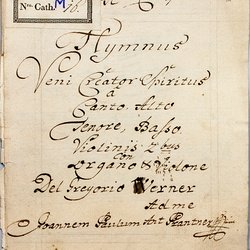 Nro. Cath. M 16.
Hymnus
Veni Creator Spiritus
a
Canto, Alto
Tenore, Basso
Violinis 2bus
con
Organo & Violone
Del Gregorio Werner
Ad me
Joannem Paulum Ant Prantner